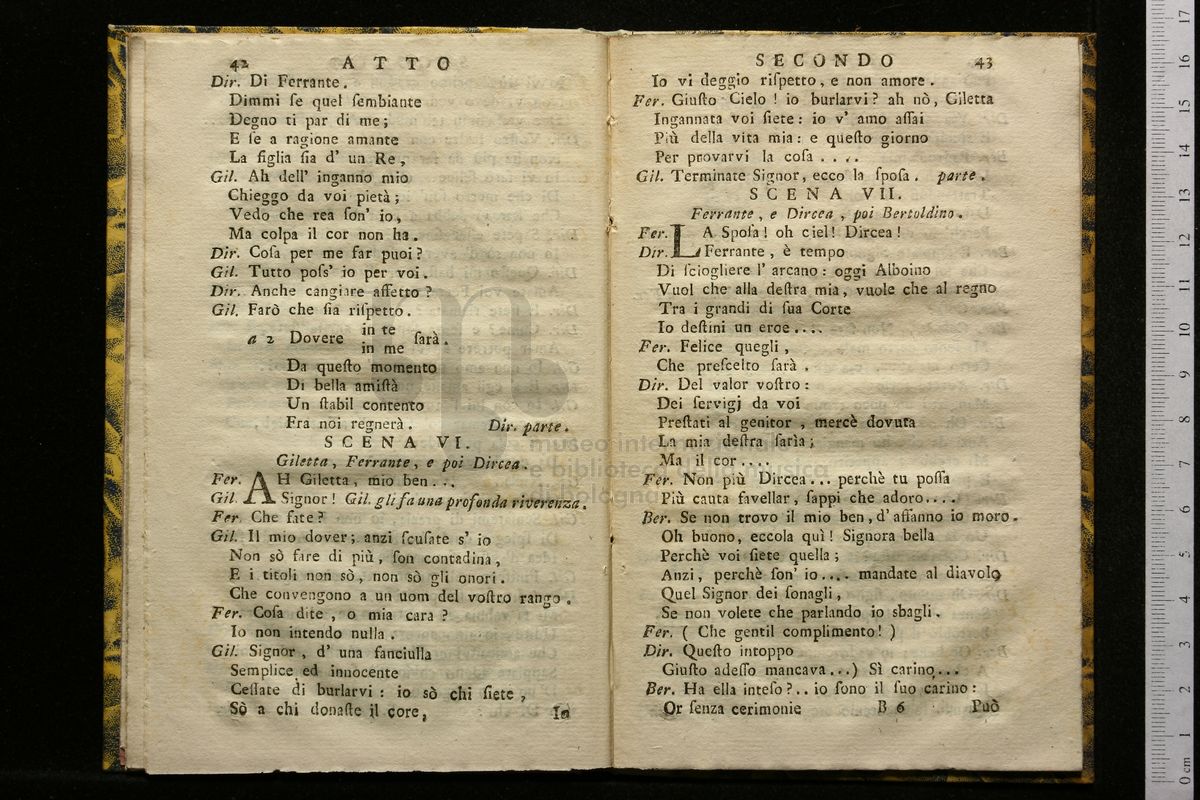 42 ATTO
Dir. Di Ferrante.
Dimmi ſe quel ſembiante
Degno ti par di me;
E ſe a ragione amante
La figlia ſia d' un Re,
Gil. Ah dell' inganno mio
Chieggo da voi pietà;
Vedo che rea ſon' io,
Ma colpa il cor non ha.
Dir. Coſa per me far puoi?
Gil. Tutto poſs' io per voi.
Dir. Anche cangiare affetto?
Gil. Farò che ſia riſpetto.
a 2 Dovere in te ſarà.
in me
Da queſto momento
Di bella amiſtà
Un ſtabil contento
Fra noi regnerà. Dir. parte.
SCENA VI.
Giletta, Ferrante, e poi Dircea.
Fer. AH Giletta, mio ben...
Gil. Signor! Gil. gli fa una profonda riverenza.
Fer. Che fate?
Gil. Il mio dover; anzi ſcuſate s' io
Non sò fare di più, ſon contadina,
E i titoli non sò, non sò gli onori.
Che convengono a un uom del voſtro rango.
Fer. Coſa dite, o mia cara?
Io non intendo nulla.
Gil. Signor, d' una fanciulla
Semplice ed innocente
Ceſſate di burlarvi: io sò chi ſiete,
Sò a chi donaſte il core,
Io
SECONDO 43
Io vi deggio riſpetto, e non amore.
Fer. Giuſto Cielo! io burlarvi? ah nò, Giletta
Ingannata voi ſiete: io v' amo aſſai
Più della vita mia: e queſto giorno
Per provarvi la coſa....
Gil. Terminate Signor, ecco la ſpoſa. parte.
SCENA VII.
Ferrante, e Dircea, poi Bertoldino.
Fer. LA Spoſa! oh ciel! Dircea!
Dir. Ferrante, è tempo
Di ſciogliere l' arcano: oggi Alboino
Vuol che alla deſtra mia, vuole che al regno
Tra i grandi di ſua Corte
Io deſtini un eroe....
Fer. Felice quegli,
Che preſcelto ſarà.
Dir. Del valor voſtro:
Dei ſervigj da voi
Preſtati al genitor, mercè dovuta
La mia deſtra ſaria;
Ma il cor....
Fer. Non più Dircea... perchè tu poſſa
Più cauta favellar, ſappi che adoro....
Ber. Se non trovo il mio ben, d' affanno io moro.
Oh buono, eccola quì! Signora bella
Perchè voi ſiete quella;
Anzi, perchè ſon' io.... mandate al diavolo
Quel Signor dei ſonagli,
Se non volete che parlando io sbagli.
Fer. ( Che gentil complimento! )
Dir. Queſto intoppo
Giuſto adeſſo mancava...) Sì carino...
Ber. Ha ella inteſo?.. io ſono il ſuo carino:
Or ſenza cerimonie B 6 Può
museo internazionale
e biblioteca della musica
di bologna
0 cm 1 2 3 4 5 6 7 8 9 10 11 12 13 14 15 16 17